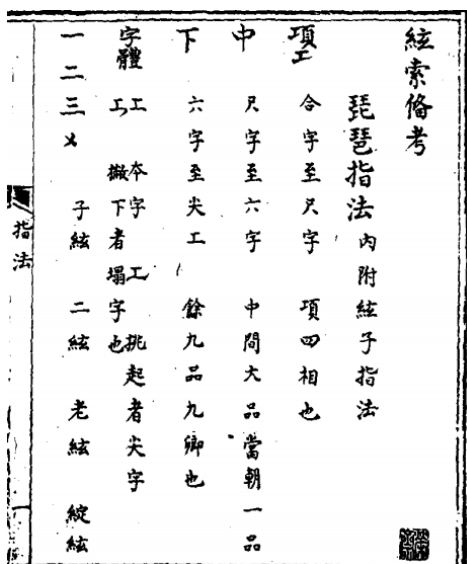 絃索俻考
琵琶指法 內附絃子指法
項 合字至尺字 項四相也
中 尺字至六字 中間大品當朝一品
下 六字至尖工 餘九品九卿也
字體 工 夲字 工 挑起者尖字
工 撇下者塌字也
一二三〤 子絃 二絃 老絃 綻絃
指法
一